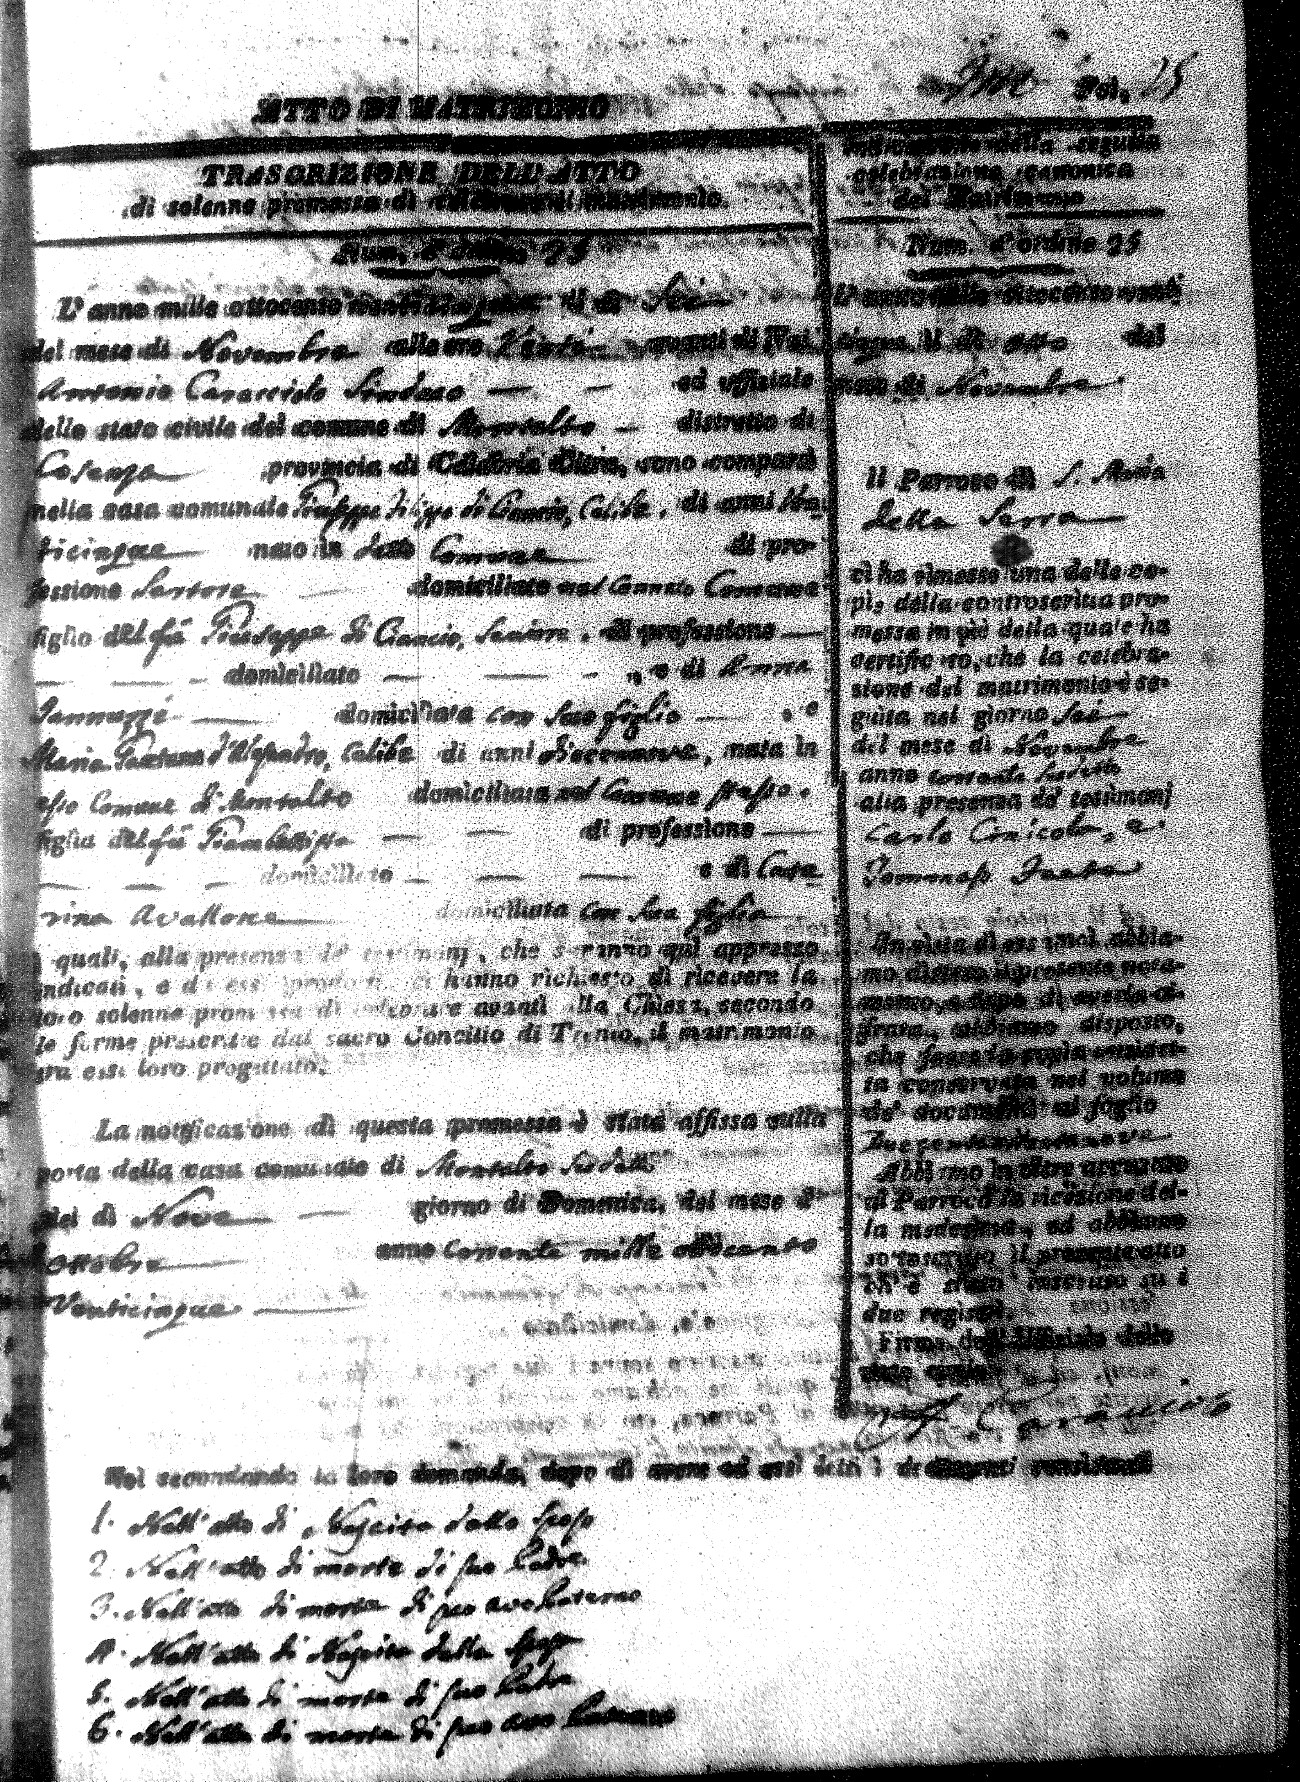 Fol. 25
ATTO DI MATRIMONIO
TRASCRIZIONE DELL'ATTO
di solenne promessa di celebrare il matrimonio.
Num. d'ordine 25
L'anno mille ottocento venticinque il dì Sei
del mese di Novembre alle ore Venti avanti di Noi
Antonio Caracciolo Sindaco ed uffiziale
dello stato civile del comune di Montalto distretto di
Cosenza provincia di Calabria Citra, sono comparsi
nella casa comunale Giuseppe Filippo di Ciancio, Celibe, di anni Ven-
ticinque nato in detto Comune di pro-
fessione Sartore domiciliato nel Comune
figlio del fù Giuseppe di Ciancio, di professione
domiciliato e di Anna
Jannuzzi domiciliata con suo figlio e
Maria Gaetana d'Alesandro, Celibe di anni diecennove, nata in
esso Comune di Montalto domiciliata nel Comune stesso.
figlia del fù Giambattista di professione
domiciliato e di Cate
rina Avallone domiciliata con sua figlia
i quali, alla presenza de' testimonj, che saranno quì appresso
indicati, e da essi prodotti, ci hanno richiesto di ricevere la
loro solenne promessa di celebrare avanti alla Chiesa, secondo
le forme prescritte dal sacro Concilio di Trento, il matrimonio
tra essi loro progettato.
La notificazione di questa promessa è stata affissa sulla
porta della casa comunale di Montalto sudetto
nel dì Nove giorno di Domenica, del mese di
Ottobre anno corrente mille ottocento
Venticinque
Indicazione della seguita
celebrazione canonica
del Matrimonio
Num. d'ordine 25
L'anno mille ottocento venti
cinque il dì otto del
mese di Novembre
il Parroco di S. Maria
della Serra
ci ha rimesso una delle co-
pie della controscritta pro-
messa in piè della quale ha
certificato, che la celebra-
zione del matrimonio è se-
guita nel giorno sei
del mese di Novembre
anno corrente sudetto
alla presenza de' testimonj
Carlo e
In vista di essa noi abbia-
mo disteso il presente nota-
mento, e dopo di averla ci-
frata, abbiamo disposto,
che fosse la copia
ta conservata nel volume
de' documenti al foglio
Abbiamo in oltre accusato
al Parroco la ricezione del-
la medesima, ed abbiamo
sottoscritto il presente atto
ch'è stato inscritto su i
due registri.
Firma dell'Uffiziale dello
stato civile
A. Caracciolo
Noi secondando la loro domanda, dopo di avere ad essi letti i documenti consistenti
1. Nell'atto di Nascita dello sposo
2. Nell'atto di morte di suo Padre
3. Nell'atto di morte di suo avo Paterno
4. Nell'atto di Nascita della sposa
5. Nell'atto di morte di suo Padre
6. Nell'atto di morte di suo avo Paterno